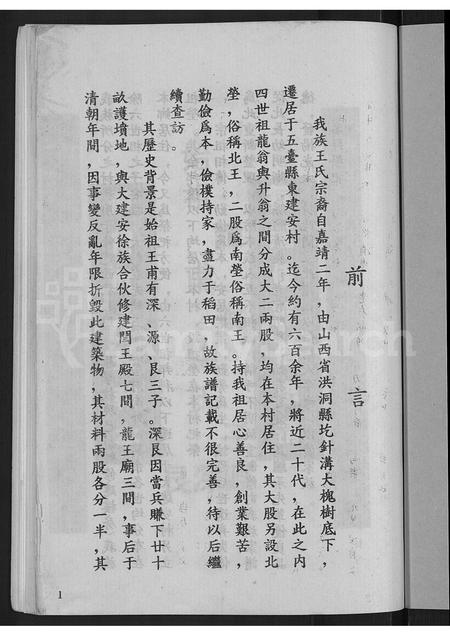 前言
我族王氏宗裔自嘉靖二年，由山西省洪洞縣圪針溝大槐樹底下，
遷居于五臺縣東建安村。迄今約有六百余年，將近二十代，在此之內
四世祖龍翁與升翁之間分成大二兩股，均在本村居住，其大股另設北
塋，俗稱北王，二股為南塋俗稱南王。持我祖居心善良，創業艱苦，
勤儉為本，儉樸持家，盡力于稻田，故族譜記載不很完善，待以后繼
續查訪。
其歷史背景是始祖王甫有深、源、艮三子。深艮因當兵賺下廿十
畝護墳地，與大建安徐族合伙修建閻王殿七間，龍王廟三間，事后于
清朝年間，因事變反亂年限折毀此建築物，其材料兩股各分一半，其
1